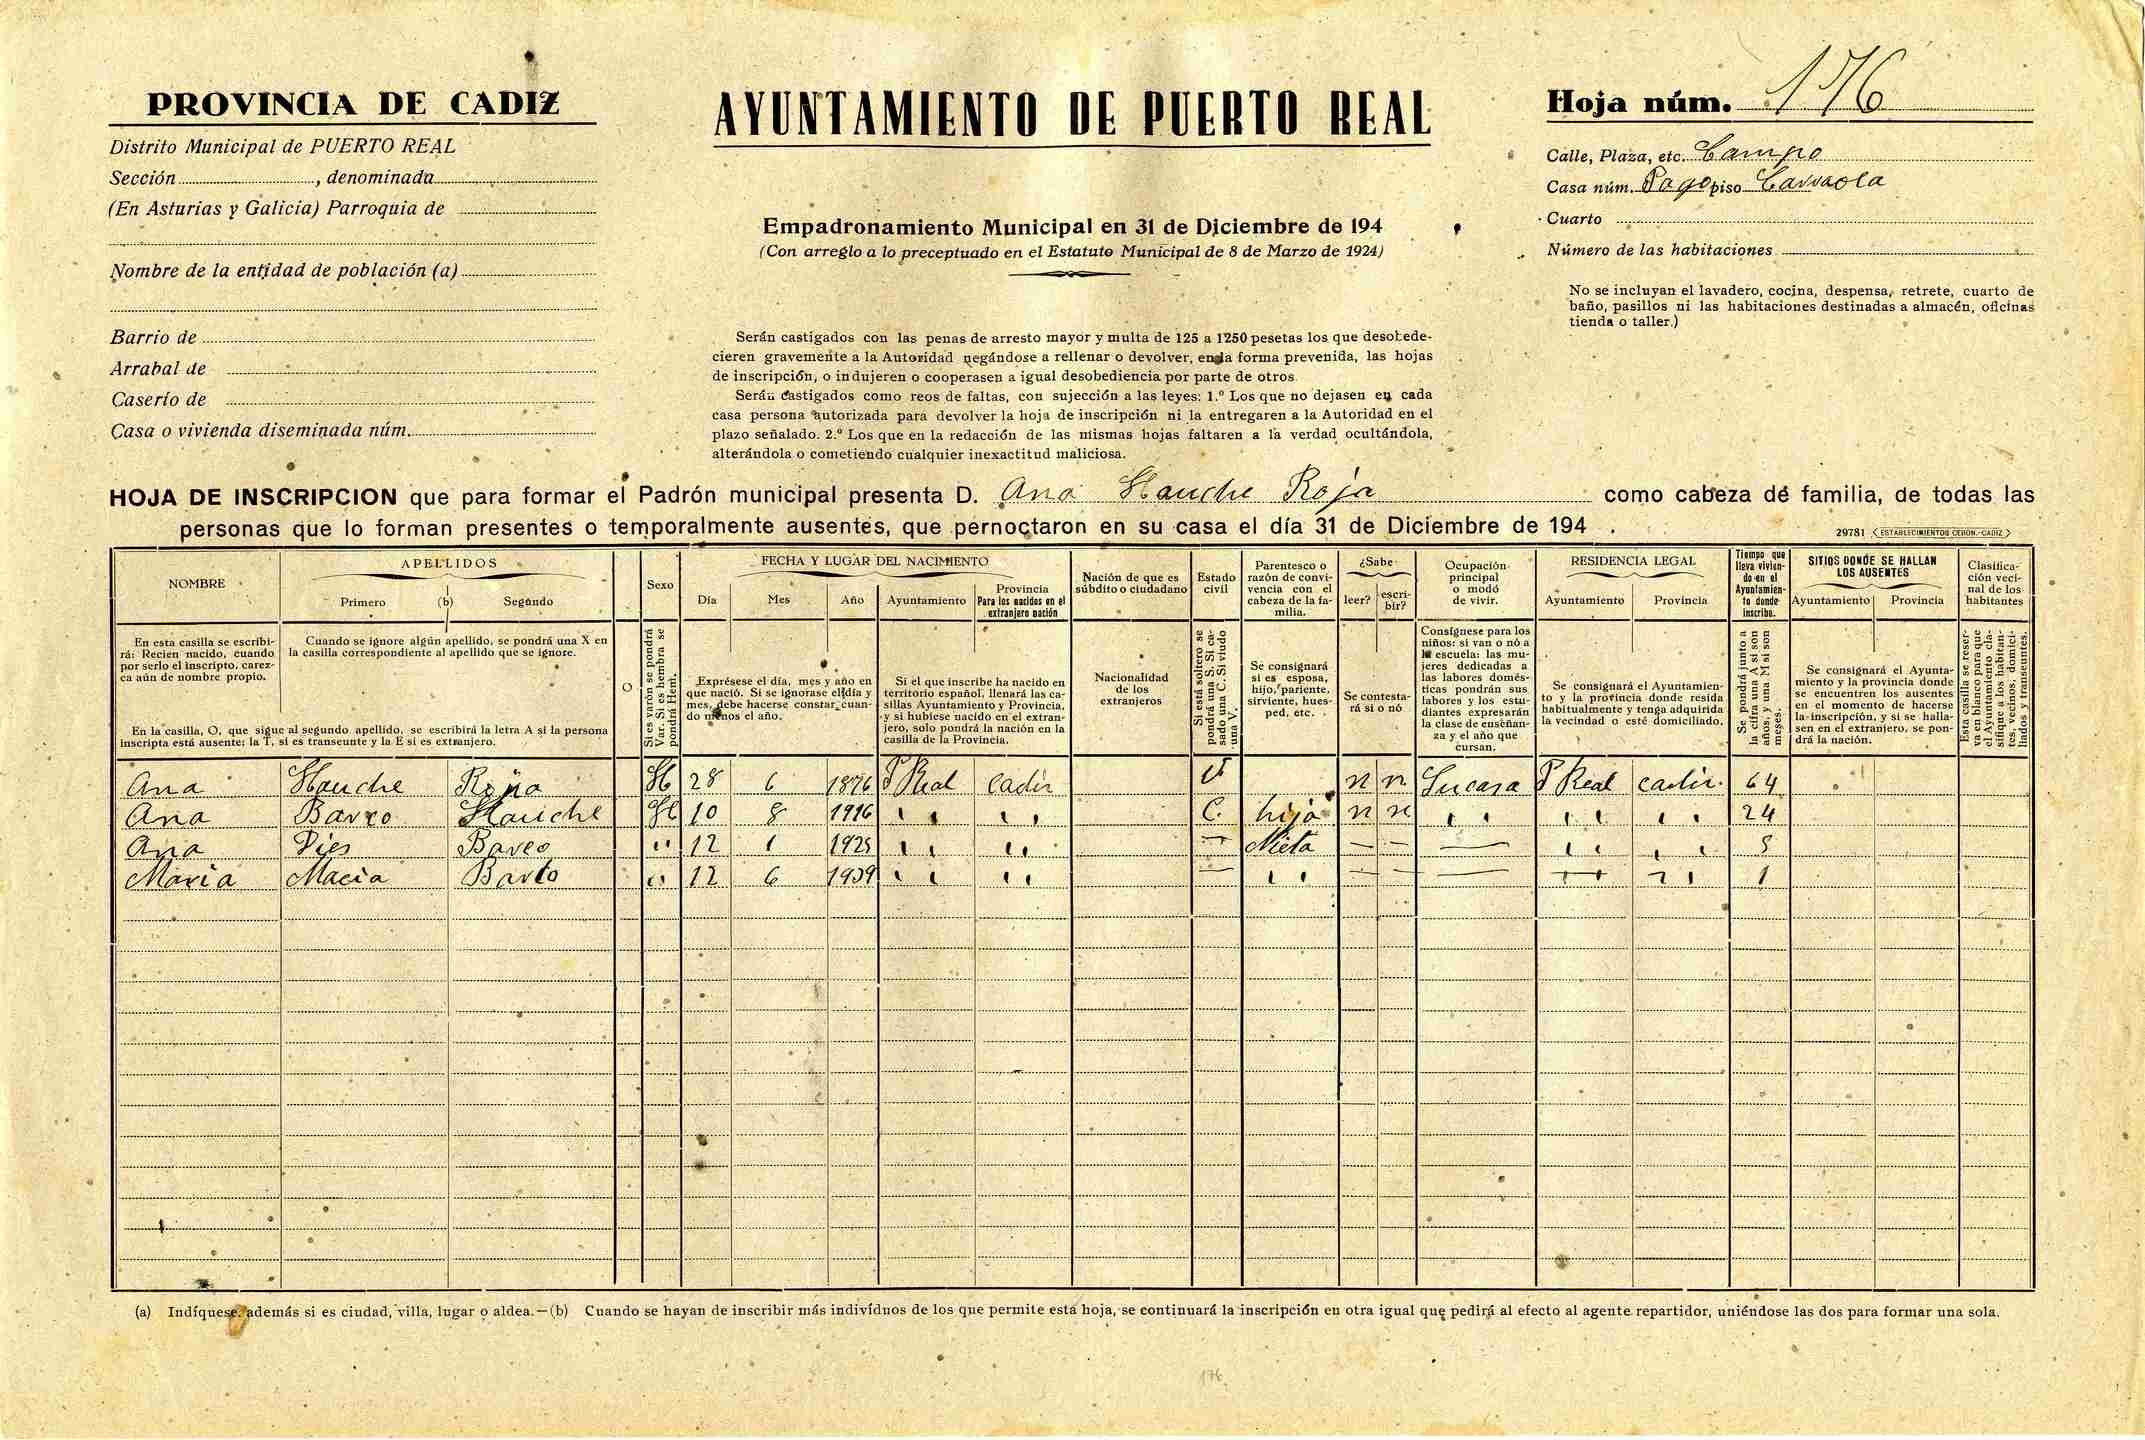 PROVINCIA DE CADIZ
Distrito Municipal de PUERTO REAL
Sección , denominada
(En Asturias y Galicia) Parroquia de
Nombre de la entidad de población (a)
Barrio de
Arrabal de
Caserío de
Casa o vivienda diseminada núm.
AYUNTAMIENTO DE PUERTO REAL
Empadronamiento Municipal en 31 de Diciembre de 194
(Con arreglo a lo preceptuado en el Estatuto Municipal de 8 de Marzo de 1924)
Serán castigados con las penas de arresto mayor y multa de 125 a 1250 pesetas los que desobede-
cieren gravemente a la Autoridad negándose a rellenar o devolver, en la forma prevenida, las hojas
de inscripción, o indujeren o cooperasen a igual desobediencia por parte de otros
Serán castigados como reos de faltas, con sujección a las leyes: 1.º Los que no dejasen en cada
casa persona autorizada para devolver la hoja de inscripción ni la entregaren a la Autoridad en el
plazo señalado. 2.º Los que en la redacción de las mismas hojas faltaren a la verdad ocultándola,
alterándola o cometiendo cualquier inexactitud maliciosa.
Hoja núm. 176
Calle, Plaza, etc. Campo
Casa núm. Pago piso
Cuarto
Número de las habitaciones
No se incluyan el lavadero, cocina, despensa, retrete, cuarto de
baño, pasillos ni las habitaciones destinadas a almacén, oficinas
tienda o taller.)
HOJA DE INSCRIPCION que para formar el Padrón municipal presenta D. Ana Roja como cabeza de familia, de todas las
personas que lo forman presentes o temporalmente ausentes, que pernoctaron en su casa el día 31 de Diciembre de 194 .
29781 ESTABLECIMIENTOS CERON.-CADIZ
NOMBRE
APELLIDOS
Primero (b) Segundo
Sexo
FECHA Y LUGAR DEL NACIMIENTO
Día Mes Año Ayuntamiento
Provincia
Para los nacidos en el
extranjero nación
Nación de que es
súbdito o ciudadano
Estado
civil
Parentesco o
razón de convi-
vencia con el
cabeza de la fa-
milia.
¿Sabe
leer? escri-
bir?
Ocupación
principal
o modo
de vivir.
RESIDENCIA LEGAL
Ayuntamiento Provincia
Tiempo que
lleva vivien-
do en el
Ayuntamien-
to donde
inscribe.
SITIOS DONDE SE HALLAN
LOS AUSENTES
Ayuntamiento Provincia
Clasifica-
ción veci-
nal de los
habitantes
En esta casilla se escribi-
rá: Recien nacido, cuando
por serlo el inscripto, carez-
ca aún de nombre propio.
Cuando se ignore algún apellido, se pondrá una X en
la casilla correspondiente al apellido que se ignore.
En la casilla, O, que sigue al segundo apellido, se escribirá la letra A si la persona
inscripta está ausente; la T, si es transeunte y la E si es extranjero.
O
Si es varón se pondrá
Var. Si es hembra se
pondrá Hem.
Exprésese el día, mes y año en
que nació. Si se ignorase el día y
mes, debe hacerse constar cuan-
do menos el año.
Si el que inscribe ha nacido en
territorio español, llenará las ca-
sillas Ayuntamiento y Provincia,
y si hubiese nacido en el extran-
jero, solo pondrá la nación en la
casilla de la Provincia.
Nacionalidad
de los
extranjeros
Si está soltero se
pondrá una S. Si ca-
sado una C. Si viudo
una V.
Se consignará
si es esposa,
hijo, pariente,
sirviente, hues-
ped, etc.
Se contesta-
rá si o nó
Consígnese para los
niños: si van o nó a
la escuela: las mu-
jeres dedicadas a
las labores domés-
ticas pondrán sus
labores y los estu-
diantes expresarán
la clase de enseñan-
za y el año que
cursan.
Se consignará el Ayuntamien-
to y la provincia donde resida
habitualmente y tenga adquirida
la vecindad o esté domiciliado.
Se pondrá junto a
la cifra una A si son
años, y una M si son
meses.
Se consignará el Ayunta-
miento y la provincia donde
se encuentren los ausentes
en el momento de hacerse
la inscripción, y si se halla-
sen en el extranjero, se pon-
drá la nación.
Esta casilla se reser-
va en blanco para que
el Ayuntamiento cla-
sifique a los habitan-
tes, vecinos, domici-
liados y transeuntes.
Ana Roja H 28 6 1876 P Real Cadiz V n n Su casa P Real Cadiz 64
Ana H 10 8 1916 " " C. hija n n " " " 24
Ana Barco " 12 1 " " — Nieta — — — " "
Maria Macia " 12 6 1939 " " — " — — — " " 1
(a) Indíquese, además si es ciudad, villa, lugar o aldea.—(b) Cuando se hayan de inscribir más indivíduos de los que permite esta hoja, se continuará la inscripción en otra igual que pedirá al efecto al agente repartidor, uniéndose las dos para formar una sola.
176